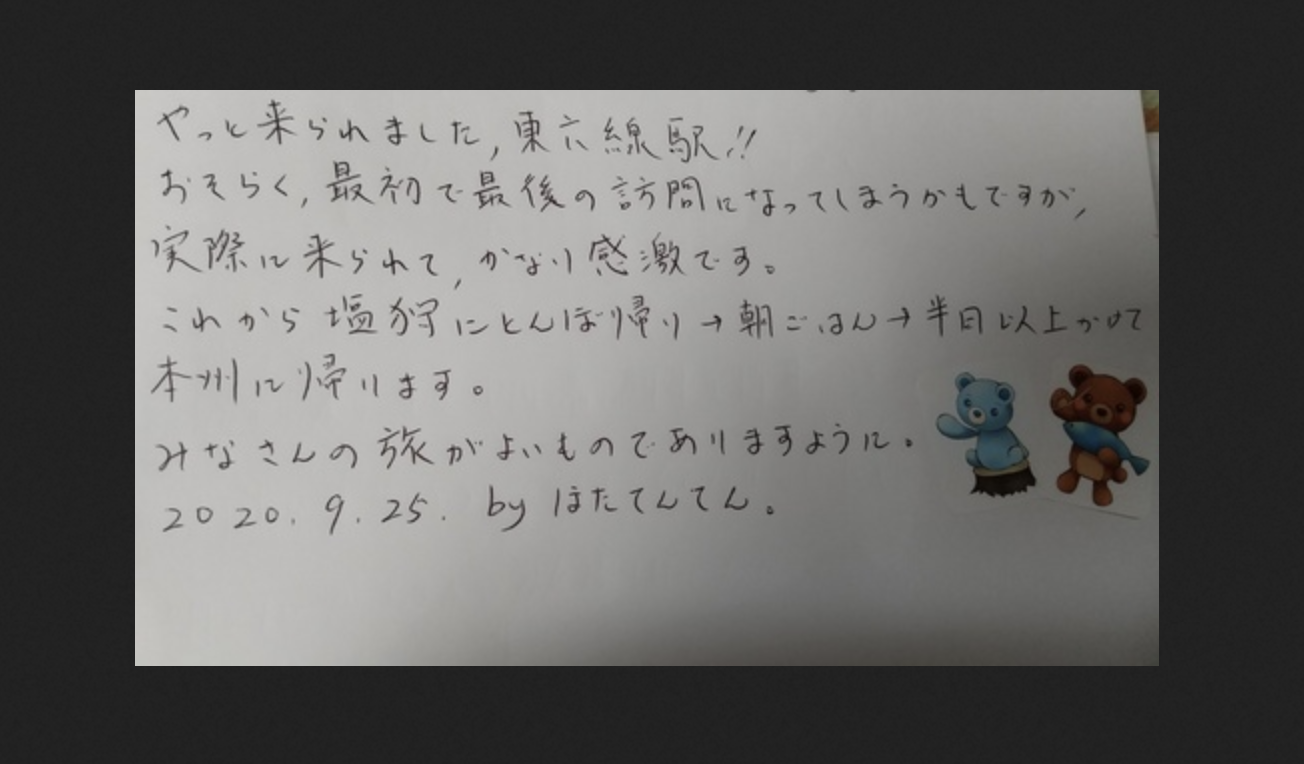 やっと来られました,東六線駅!!
おそらく,最初で最後の訪問になってしまうかもですが,
実際に来られて,かなり感激です。
これから塩狩にとんぼ帰り→朝ごはん→半日以上かけて
本州に帰ります。
みなさんの旅がよいものでありますように。
2020.9.25. by ほたてんてん。